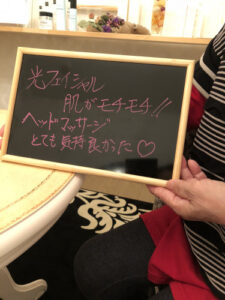 光フェイシャル
肌がモチモチ!!
ヘッドマッサージ
とても気持良かった♡